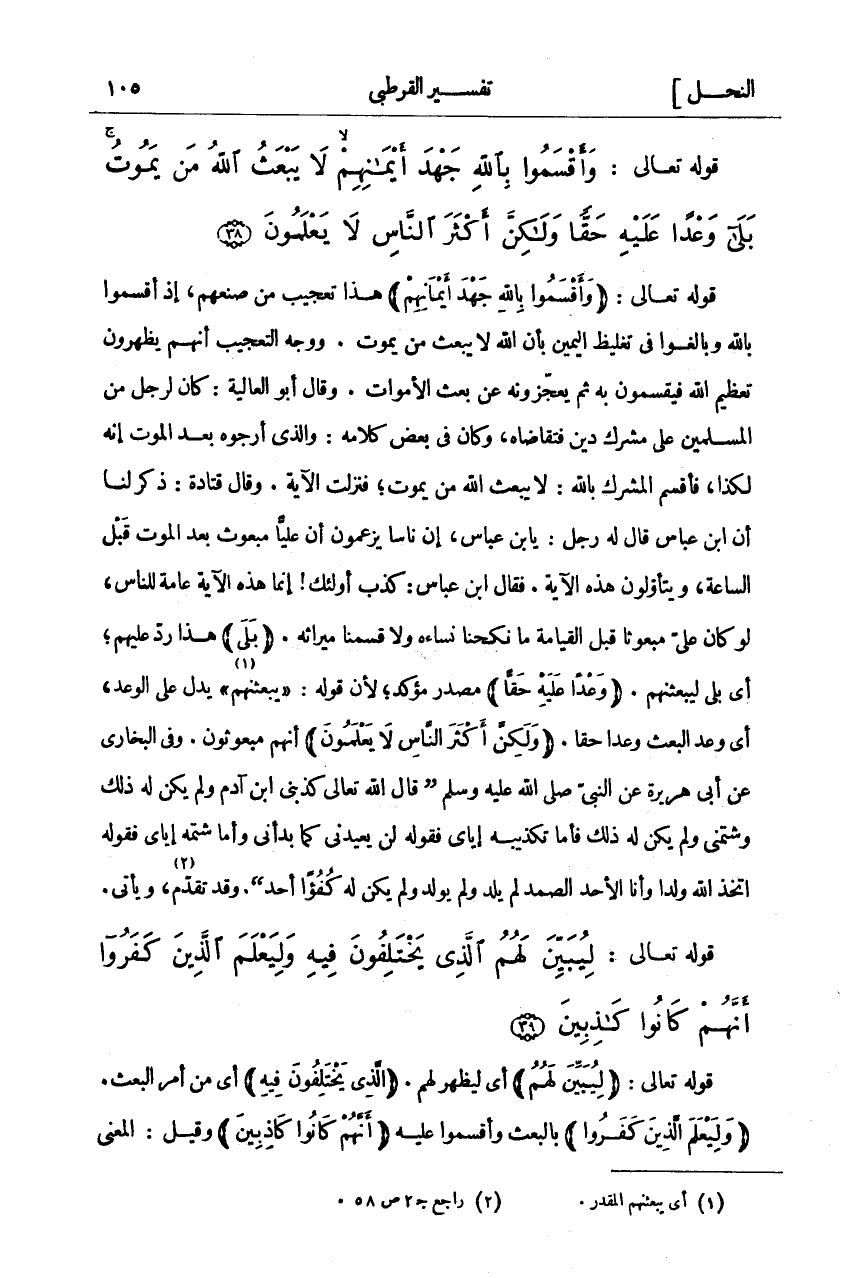 النحل ] تفسير القرطبى ١٠٥
قوله تعالى : وَأَقْسَمُوا بِٱللَّهِ جَهْدَ أَيْمَـٰنِهِمْ ۙ لَا يَبْعَثُ ٱللَّهُ مَن يَمُوتُ ۚ
بَلَىٰ وَعْدًا عَلَيْهِ حَقًّا وَلَـٰكِنَّ أَكْثَرَ ٱلنَّاسِ لَا يَعْلَمُونَ ﴿٣٨﴾
قوله تعالى : ﴿ وَأَقْسَمُوا بِاللهِ جَهْدَ أَيْمَانِهِمْ ﴾ هذا تعجيب من صنعهم، إذ أقسموا
بالله وبالغوا فى تغليظ اليمين بأن الله لا يبعث من يموت . ووجه التعجيب أنهم يظهرون
تعظيم الله فيقسمون به ثم يعجّزونه عن بعث الأموات . وقال أبو العالية : كان لرجل من
المسلمين على مشرك دين فتقاضاه، وكان فى بعض كلامه : والذى أرجوه بعد الموت إنه
لكذا، فأقسم المشرك بالله : لا يبعث الله من يموت؛ فنزلت الآية . وقال قتادة : ذكر لنا
أن ابن عباس قال له رجل : يابن عباس، إن ناسا يزعمون أن عليًّا مبعوث بعد الموت قَبْل
الساعة، ويتأوّلون هذه الآية . فقال ابن عباس: كذب أولئك! إنما هذه الآية عامة للناس،
لو كان علىّ مبعوثا قبل القيامة ما نكحنا نساءه ولا قسمنا ميراثه . ﴿ بَلَى ﴾ هذا ردّ عليهم؛
أى بلى ليبعثنهم . ﴿ وَعْدًا عَلَيْهِ حَقًّا ﴾ مصدر مؤكد؛ لأن قوله : «يبعثنهم» (١) يدل على الوعد،
أى وعد البعث وعدا حقا . ﴿ وَلَكِنَّ أَكْثَرَ النَّاسِ لَا يَعْلَمُونَ ﴾ أنهم مبعوثون . وفى البخارى
عن أبى هريرة عن النبىّ صلى الله عليه وسلم ” قال الله تعالى كذبنى ابن آدم ولم يكن له ذلك
وشتمنى ولم يكن له ذلك فأما تكذيبه إياى فقوله لن يعيدنى كما بدأنى وأما شتمه إياى فقوله
اتخذ الله ولدا وأنا الأحد الصمد لم يلد ولم يولد ولم يكن له كُفُوًا أحد“. وقد تقدّم، (٢) ويأتى.
قوله تعالى : لِيُبَيِّنَ لَهُمُ ٱلَّذِى يَخْتَلِفُونَ فِيهِ وَلِيَعْلَمَ ٱلَّذِينَ كَفَرُوٓا
أَنَّهُمْ كَانُوا كَـٰذِبِينَ ﴿٣٩﴾
قوله تعالى : ﴿ لِيُبَيِّنَ لَهُمُ ﴾ أى ليظهر لهم . ﴿ الَّذِى يَخْتَلِفُونَ فِيهِ ﴾ أى من أمر البعث.
﴿ وَلِيَعْلَمَ الَّذِينَ كَفَرُوا ﴾ بالبعث وأقسموا عليه ﴿ أَنَّهُمْ كَانُوا كَاذِبِينَ ﴾ وقيل : المعنى
(١) أى يبعثنهم المقدر . (٢) راجع جـ ٢ ص ٥٨ .